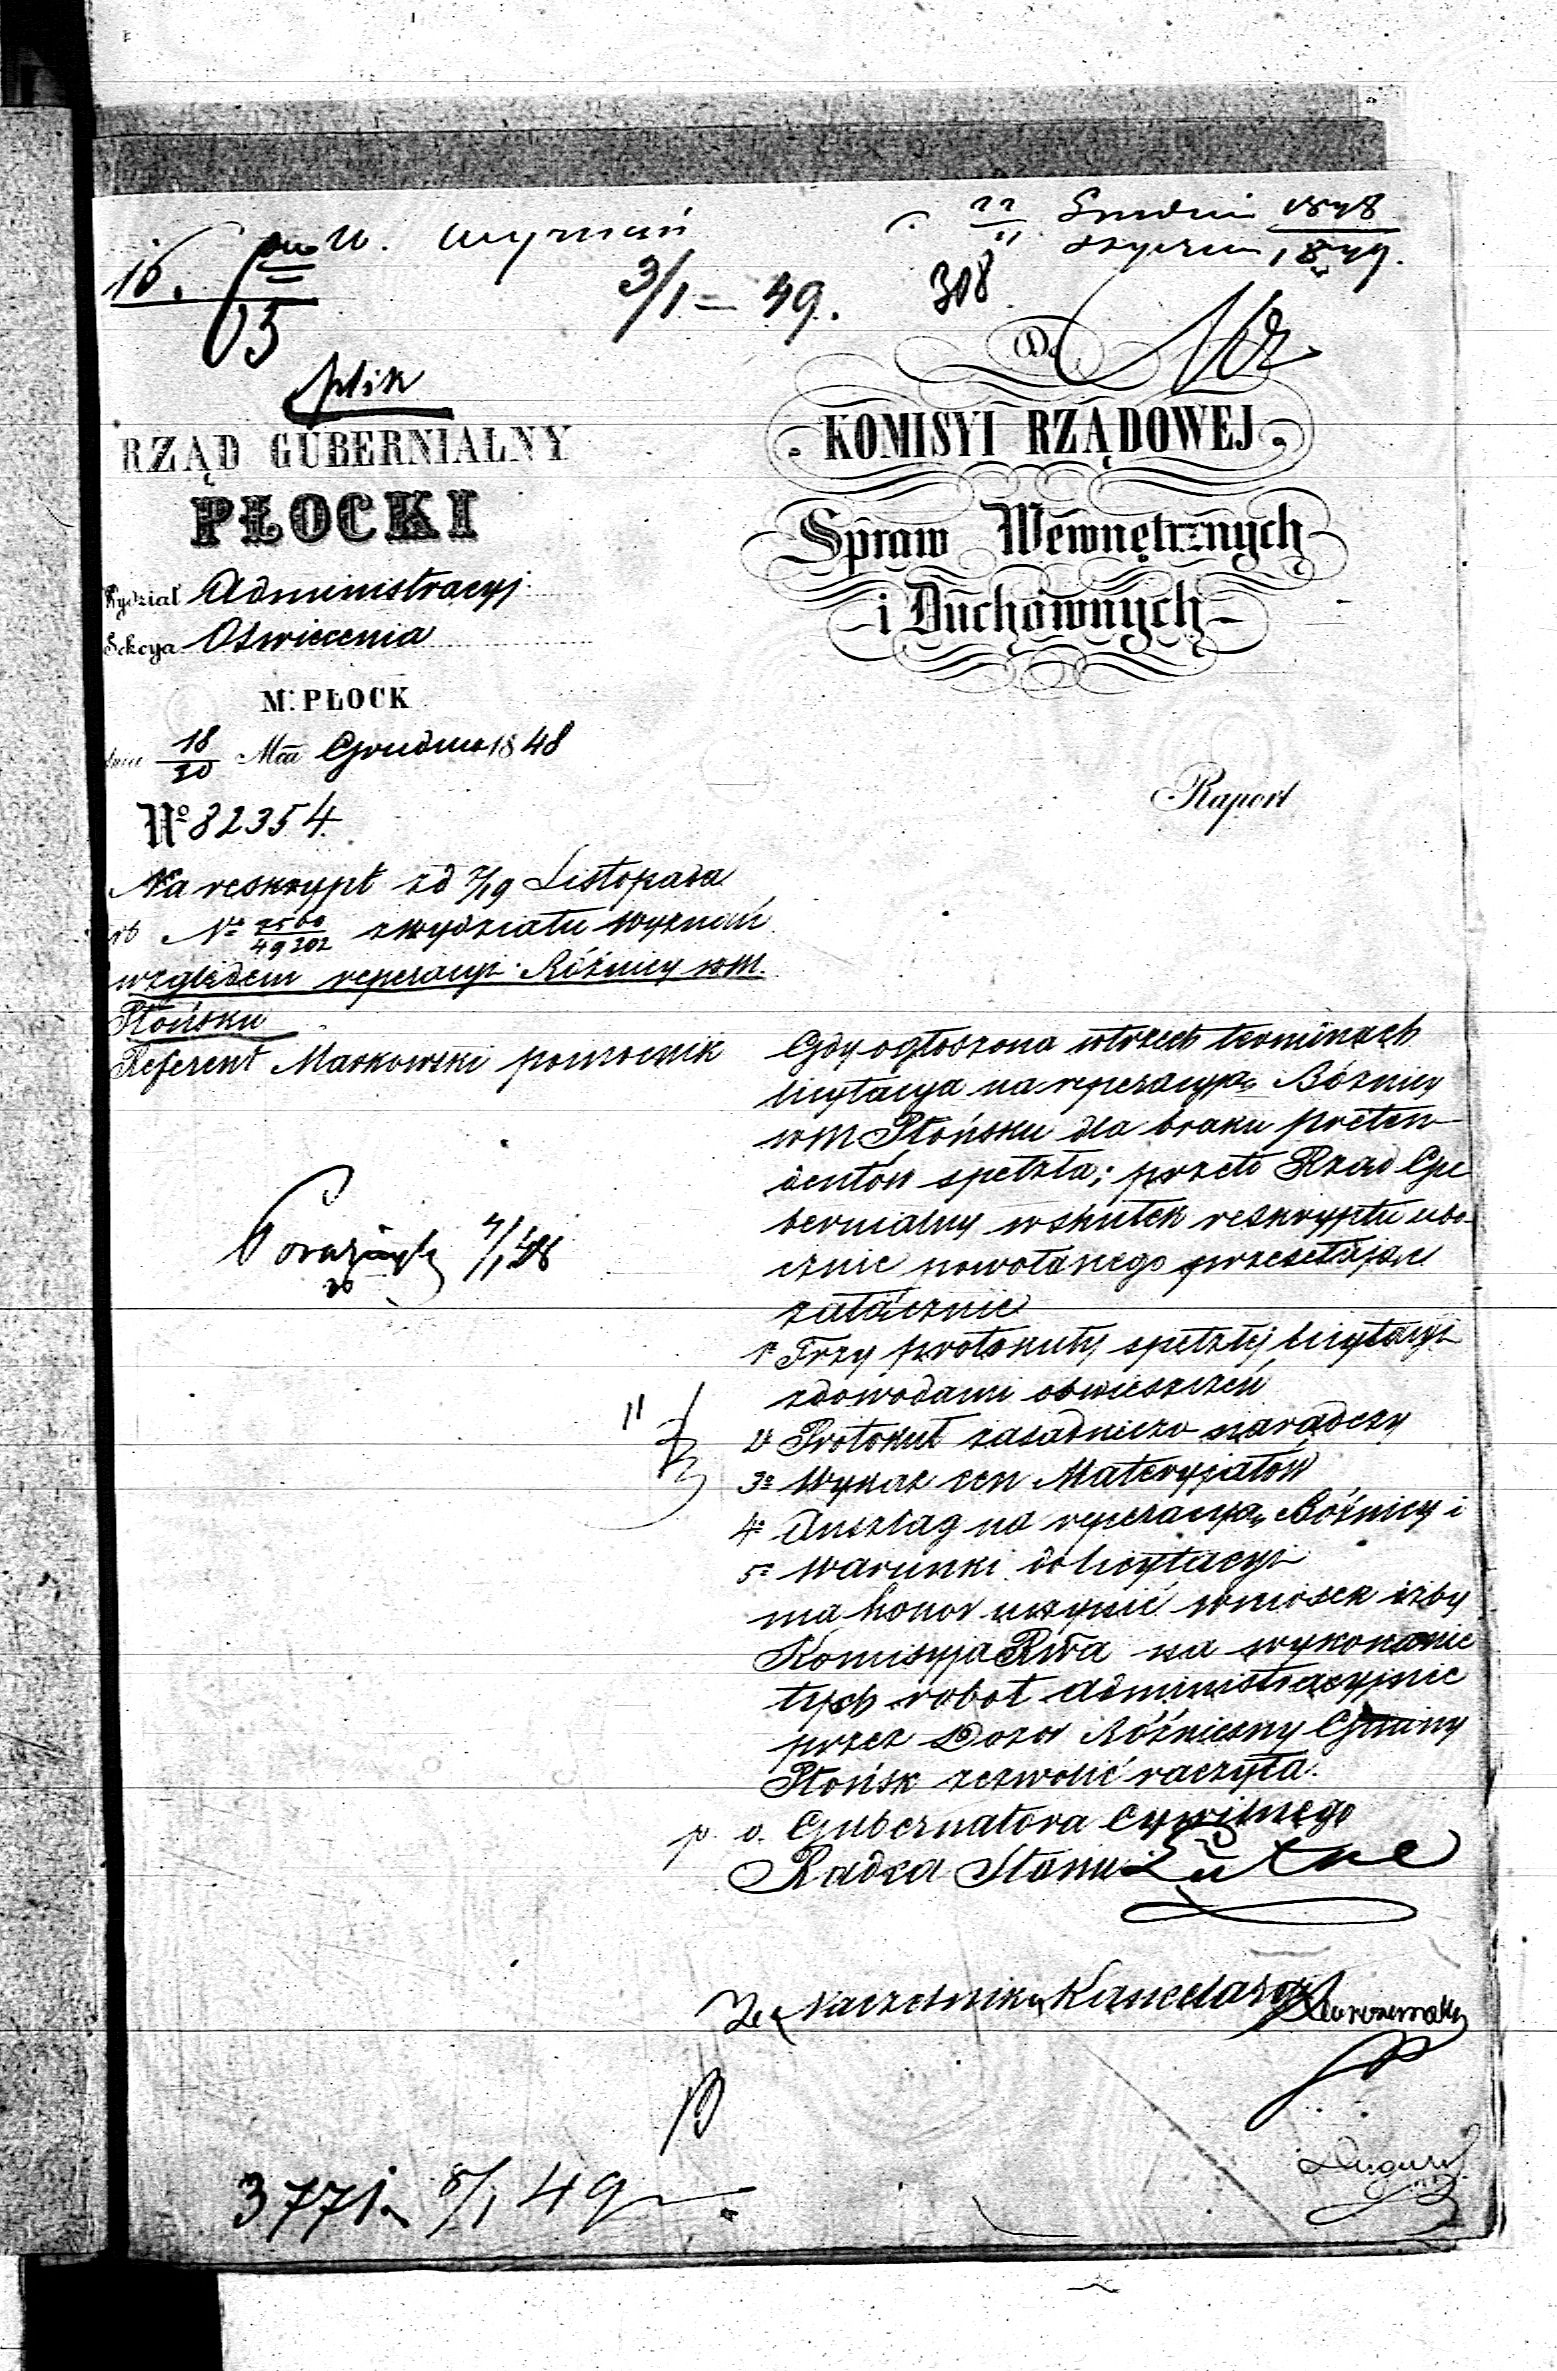 W. Wyznań
3/1 = 49.
308
16.
65
plik
RZĄD GUBERNIALNY
PŁOCKI
Wydział Administracyj.
Sekcya Oświecenia
M. PŁOCK
dnia 18/30 Mca Grudnia 1848
No 82354.
Na reskrypt z d 7/19 Listopada
rb No 49202 z wydziału Wyznań
względem reperacyi Bóźnicy w M.
Płońsku
Referent Markowski pomocnik
Do
KOMISYI RZĄDOWEJ
Spraw Wewnętrznych
i Duchownych
Raport
Gdy ogłoszona w trzech terminach
licytacya na reperacyą Bóżnicy
w M Płońsku dla braku preten-
dentów spełzła; przeto Rząd Gu
bernialny w skutek reskryptu ubo-
cznie powołanego przesełając
załącznie
1o Trzy protokuły spełzłej licytacyi
z dowodami obwieszczeń
2o Protokuł zasadniczo naradczy
3o Wykaz cen Materyjałów
4o Anszlag na reperacyą Bóźnicy i
5o Warunki do licytacyi
ma honor uczynić wniosek iżby
Komisyja Rwa na wykonanie
tych robot administracyjnie
przez Dozór Bóźniczny Gminy
Płońsk zezwolić raczyła.
p. o. Gubernatora Cywilnego
Radca Stanu
Za Naczelnika Kancelaryi
3771. 8/1 49